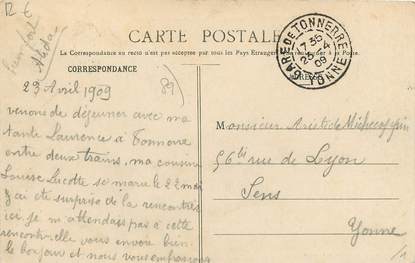 CARTE POSTALE
La Correspondance au recto n'est pas acceptée par tous les Pays Etrangers
CORRESPONDANCE
GARE DE TONNERRE
17 35
23 -4
09
YONNE
23 Avril 1909
89
venons de déjeuner avec ma
tante Laurence à Tonnerre
entre deux trains, ma cousine
Louise Lucotte se marie le 22 mai
j'ai été surprise de la rencontrer
ici je m'attendais pas à cette
rencontre elle vous envoie bien
le bonjour et nous vous embrassons
Monsieur
56 bis rue de Lyon
Sens
Yonne